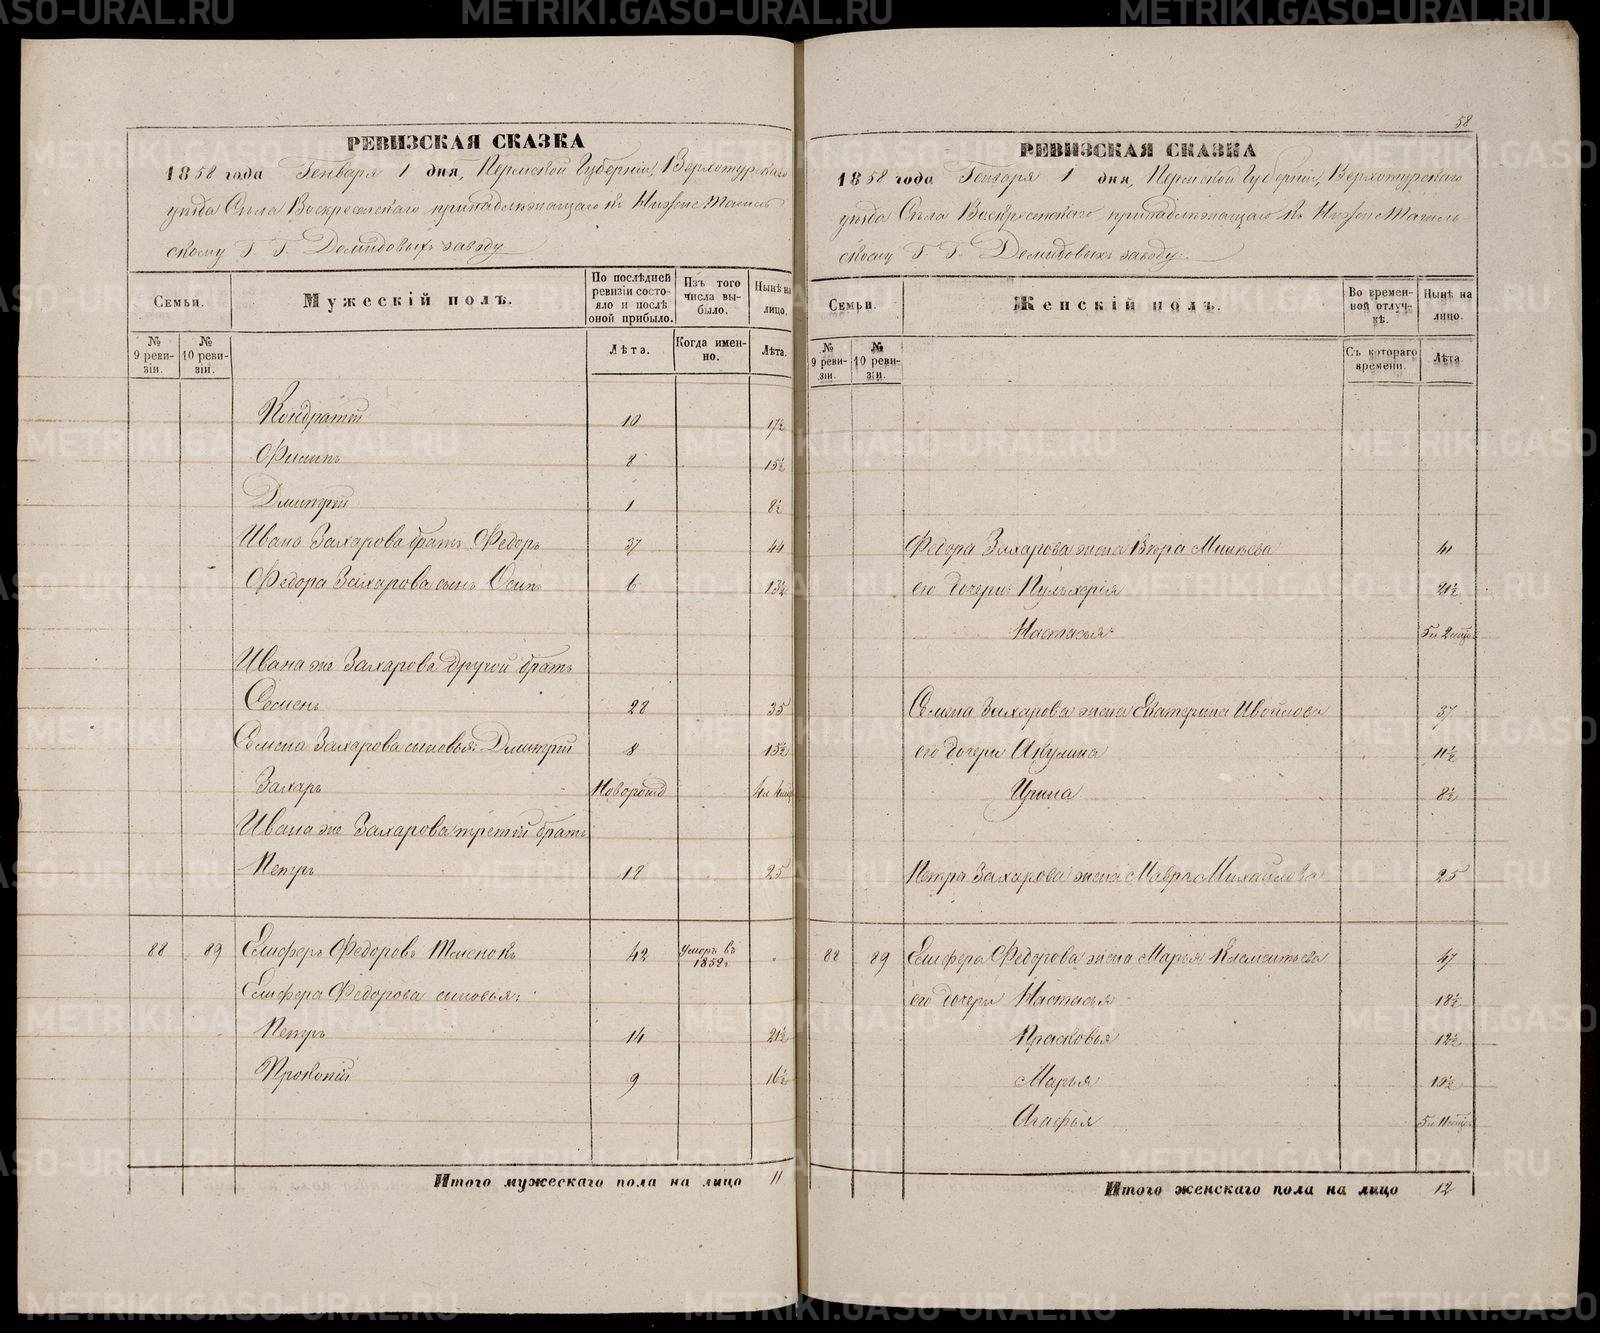 РЕВИЗСКАЯ СКАЗКА
1858 года Генваря 1 дня, Пермской Губернiи, Верхотурскаго
уѣзда Села Воскресенскаго принадлежащаго къ Нижне Тагиль
скому Г. Г. Демидовыхъ заводу
Семьи.
Мужескiй полъ.
По послѣдней ревизiи состояло и послѣ оной прибыло.
Изъ того числа выбыло.
Нынѣ на лицо.
№ 9 ревизiи.
№ 10 ревизiи.
Лѣта.
Когда именно.
Лѣта.
Кондратей 10 17½
Филипъ 8 15½
Дмитрей 1 8½
Ивана Захарова братъ Федоръ 37 44
Федора Захарова сынъ Осипъ 6 13½
Ивана же Захарова другой братъ
Семенъ 28 35
Семена Захарова сыновья: Дмитрiй 8 15½
Захаръ Новорожд
Ивана же Захарова третей братъ
Петръ 18 25
88 89 Елиферъ Федоровъ 42 Умеръ въ 1852 г.
Елифера Федорова сыновья:
Петръ 14 21½
Прокопiй 9 16½
Итого мужескаго пола на лицо 11
58
РЕВИЗСКАЯ СКАЗКА
1858 года Генваря 1 дня, Пермской Губернiи, Верхотурскаго
уѣзда Села Воскресенскаго принадлежащаго къ Нижне Тагиль
скому Г. Г. Демидовыхъ заводу.
Семьи.
Женскiй полъ.
Во временной отлучкѣ.
Нынѣ на лицо.
№ 9 ревизiи.
№ 10 ревизiи.
Съ котораго времени.
Лѣта.
Федора Захарова жена Вѣра 41
его дочери: Пульхерiя 21½
Настасья 5 и 2 мѣц.
Семена Захарова жена Екатерина 37
его дочери Акулина 11½
Ирина 8½
Петра Захарова жена Мавра Михайлова 25
88 89 Елифера Федорова жена Марья Климентьева 47
его дочери Настасья 18½
Прасковья 12½
Марья 10½
Агафья 5 и 11 мѣц.
Итого женскаго пола на лицо 12
METRIKI.GASO-URAL.RU